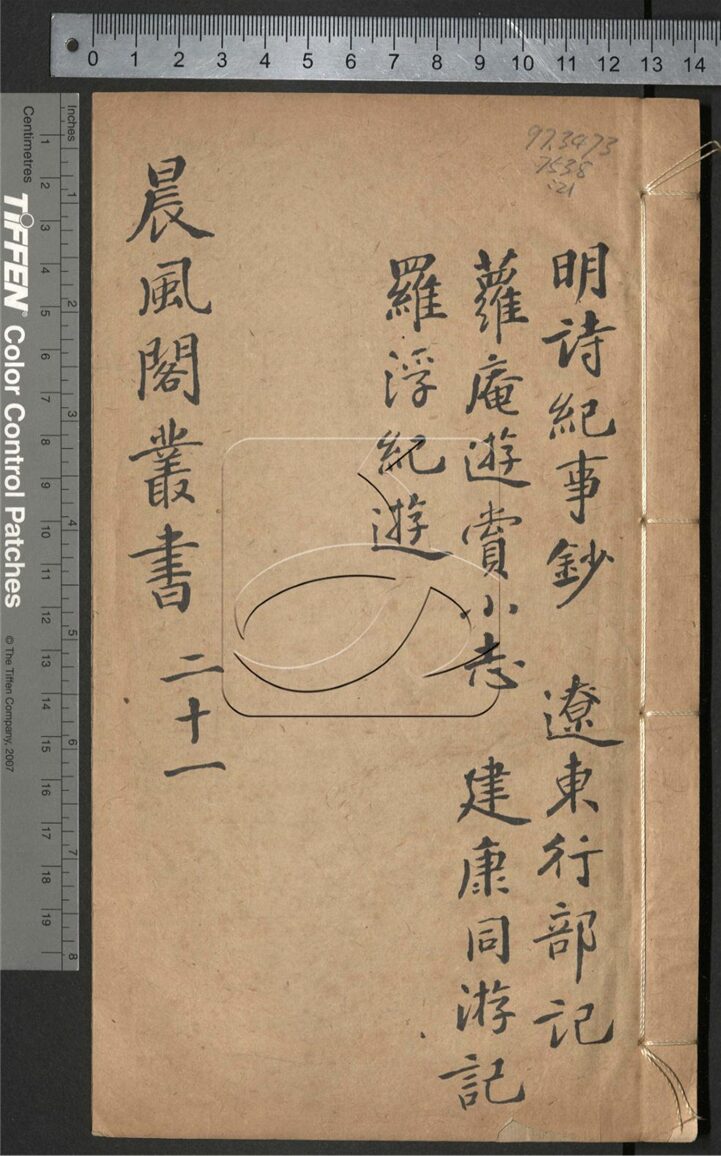 0 1 2 3 4 5 6 7 8 9 10 11 12 13 14
Inches
1 2 3 4 5 6 7 8
Centimetres
1 2 3 4 5 6 7 8 9 10 11 12 13 14 15 16 17 18 19
TIFFEN® Color Control Patches
© The Tiffen Company, 2007
973473
7538
:21
明詩紀事鈔 遼東行部記
蘿庵遊賞小志 建康同游記
羅浮紀遊
晨風閣叢書 二十一